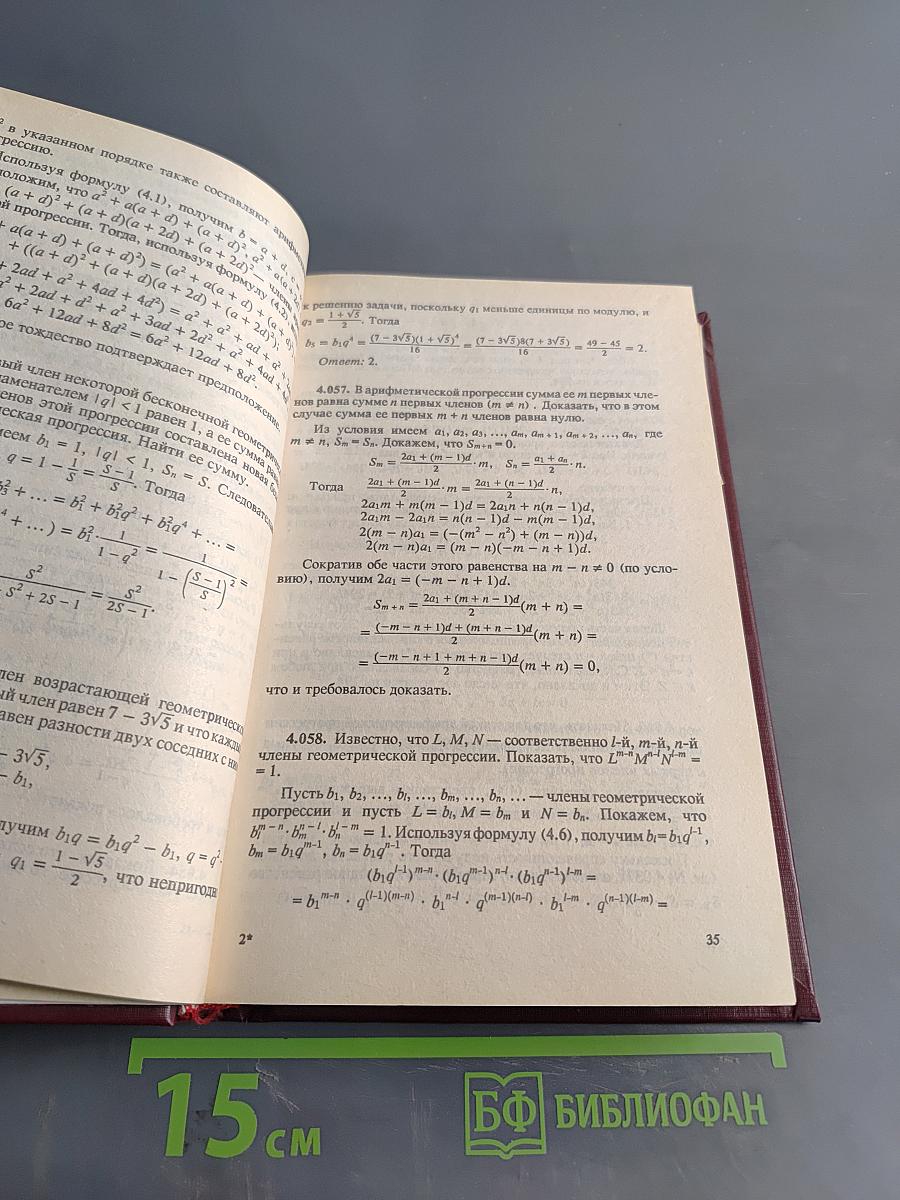 ² в указанном порядке также составляют
грессию.
Используя формулу (4.1), получим b = a + d, c
положим, что a² + a(a + d) + (a + d)², a² + a(a
(a + d)² + (a + d)(a + 2d) + (a + 2d)² — члены
й прогрессии. Тогда, используя формулу (4.2),
+ a(a + d) + (a + d)²) = (a² + a(a + d) + (a
+ ((a + d)² + (a + d)(a + 2d) + (a + 2d)²),
+ 2ad + a² + 4ad + 4d²) = a² + a² + ad + a²
a² + 2ad + d² + a² + 3ad + 2d² + a² + 4ad +
6a² + 12ad + 8d² = 6a² + 12ad + 8d².
ое тождество подтверждает предположение.
вый член некоторой бесконечной геометрич
наменателем |q| < 1 равен 1, а ее сумма рав
ленов этой прогрессии составлена новая
ческая прогрессия. Найти ее сумму.
меем b₁ = 1, |q| < 1, Sₙ = S. Следовател
q = 1 − 1/S = (S − 1)/S. Тогда
b₃² + … = b₁² + b₁²q² + b₁²q⁴ + … =
⁴ + …) = b₁² · 1/(1 − q²) = 1/(1 − ((S − 1)/S)²) =
S²/(S² + 2S − 1) = S²/(2S − 1).
лен возрастающей геометрическо
ый член равен 7 − 3√5 и что кажды
авен разности двух соседних с ни
− 3√5,
− b₁,
лучим b₁q = b₁q² − b₁, q = q²
q₁ = (1 − √5)/2, что непригодн
к решению задачи, поскольку q₁ меньше единицы по модулю, и
q₂ = (1 + √5)/2. Тогда
b₅ = b₁q⁴ = (7 − 3√5)(1 + √5)⁴/16 = (7 − 3√5)8(7 + 3√5)/16 = (49 − 45)/2 = 2.
Ответ: 2.
4.057. В арифметической прогрессии сумма ее m первых чле-
нов равна сумме n первых членов (m ≠ n) . Доказать, что в этом
случае сумма ее первых m + n членов равна нулю.
Из условия имеем a₁, a₂, a₃, …, aₘ, aₘ₊₁, aₘ₊₂, …, aₙ, где
m ≠ n, Sₘ = Sₙ. Докажем, что Sₘ₊ₙ = 0.
Sₘ = (2a₁ + (m − 1)d)/2 · m, Sₙ = (a₁ + aₙ)/2 · n.
Тогда (2a₁ + (m − 1)d)/2 · m = (2a₁ + (n − 1)d)/2 · n,
2a₁m + m(m − 1)d = 2a₁n + n(n − 1)d,
2a₁m − 2a₁n = n(n − 1)d − m(m − 1)d,
2(m − n)a₁ = (−(m² − n²) + (m − n))d,
2(m − n)a₁ = (m − n)(−m − n + 1)d.
Сократив обе части этого равенства на m − n ≠ 0 (по усло-
вию), получим 2a₁ = (−m − n + 1)d.
Sₘ₊ₙ = (2a₁ + (m + n − 1)d)/2 (m + n) =
= ((−m − n + 1)d + (m + n − 1)d)/2 (m + n) =
= (−m − n + 1 + m + n − 1)d/2 (m + n) = 0,
что и требовалось доказать.
4.058. Известно, что L, M, N — соответственно l-й, m-й, n-й
члены геометрической прогрессии. Показать, что Lᵐ⁻ⁿMⁿ⁻ˡNˡ⁻ᵐ =
= 1.
Пусть b₁, b₂, …, bₗ, …, bₘ, …, bₙ, … — члены геометрической
прогрессии и пусть L = bₗ, M = bₘ и N = bₙ. Покажем, что
bₗᵐ⁻ⁿ · bₘⁿ⁻ˡ · bₙˡ⁻ᵐ = 1. Используя формулу (4.6), получим bₗ = b₁qˡ⁻¹,
bₘ = b₁qᵐ⁻¹, bₙ = b₁qⁿ⁻¹. Тогда
(b₁qˡ⁻¹)ᵐ⁻ⁿ · (b₁qᵐ⁻¹)ⁿ⁻ˡ · (b₁qⁿ⁻¹)ˡ⁻ᵐ =
= b₁ᵐ⁻ⁿ · q⁽ˡ⁻¹⁾⁽ᵐ⁻ⁿ⁾ · b₁ⁿ⁻ˡ · q⁽ᵐ⁻¹⁾⁽ⁿ⁻ˡ⁾ · b₁ˡ⁻ᵐ · q⁽ⁿ⁻¹⁾⁽ˡ⁻ᵐ⁾ =
2*
35
15 см
БФ БИБЛИОФАН